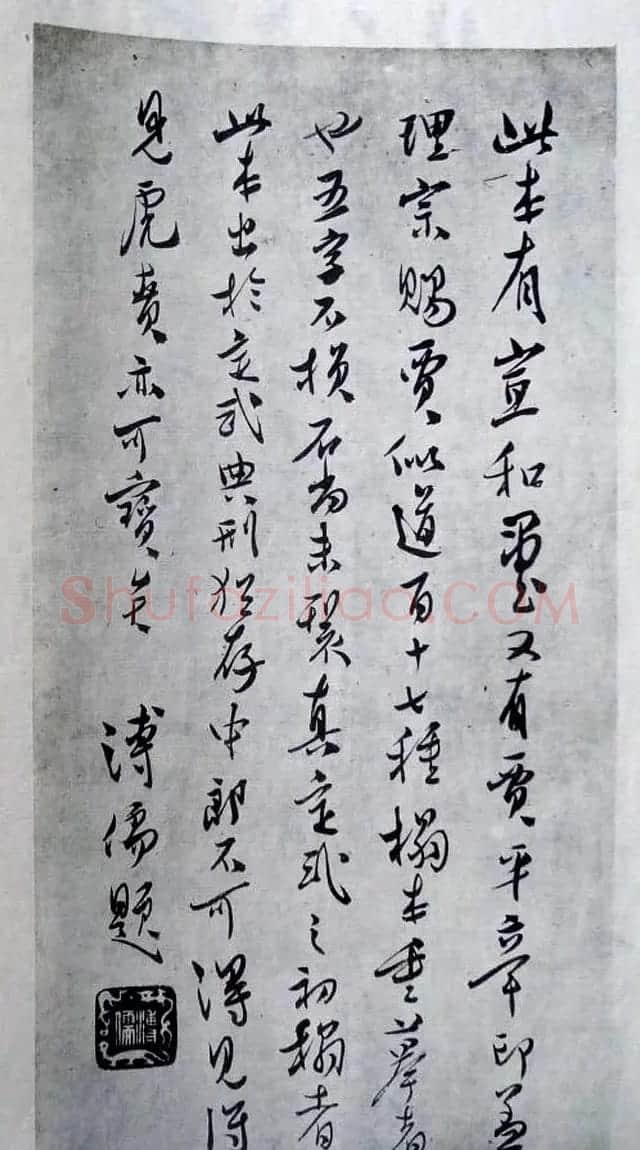 此本有宣和璽又有賈平章印蓋
理宗賜賈似道百十七種榻本重摹者
也五字不損石尚未裂真定武之初搨者
此本出於定武典刑猶存中郎不可得見得
見虎賁亦可寶矣 溥儒題
溥儒
Shufaziliao.COM